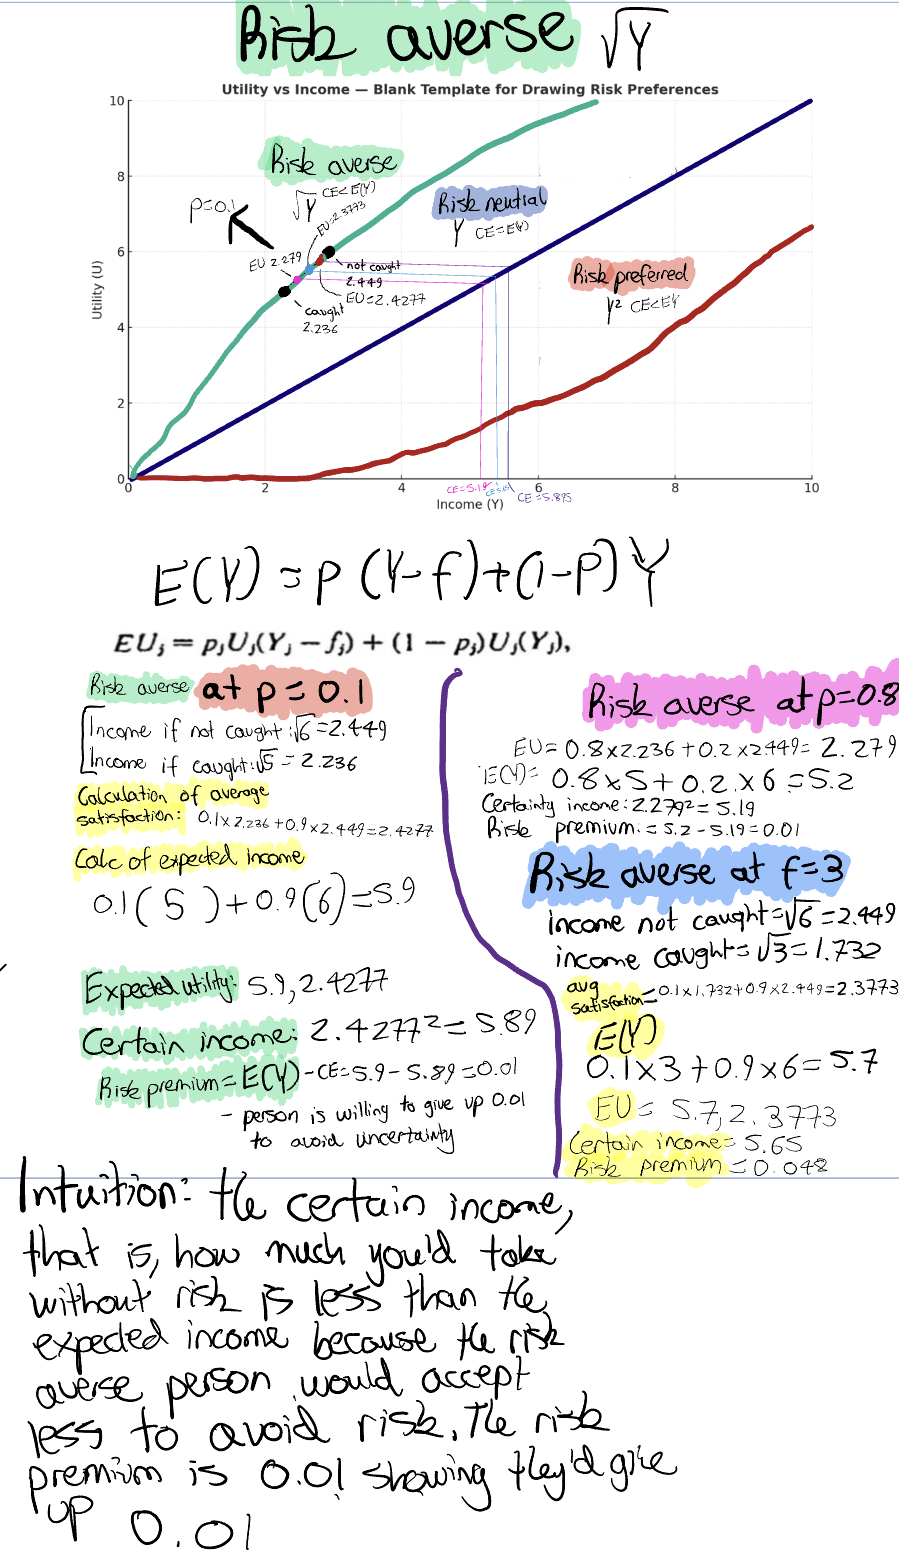 Risk averse √Y
Utility vs Income — Blank Template for Drawing Risk Preferences
Utility (U)
10
8
6
4
2
0
Risk averse
√Y CE<E(Y)
EU=2.3773
P=0.1
EU 2.279
not caught
2.449
EU=2.4277
caught
2.236
Risk neutral
Y CE=E(Y)
Risk preferred
Y² CE<EY
0 2 4 6 8 10
CE=5.19
CE=5.895
Income (Y)
E(Y) = p (Y-f)+(1-P)Y
EUⱼ = pⱼUⱼ(Yⱼ − fⱼ) + (1 − pⱼ)Uⱼ(Yⱼ),
Risk averse at p = 0.1
Income if not caught:√6=2.449
Income if caught:√5 = 2.236
Calculation of average
satisfaction: 0.1x2.236+0.9x2.449=2.4277
Calc of expected income
0.1(5)+0.9(6)=5.9
Expected utility: 5.9, 2.4277
Certain income: 2.4277²=5.89
Risk premium=E(Y)-CE=5.9-5.89=0.01
- person is willing to give up 0.01
to avoid uncertainty
Risk averse at p=0.8
EU=0.8x2.236+0.2x2449=2.279
E(Y)=0.8x5+0.2x6=5.2
Certainty income:2.279²=5.19
Risk premium:=5.2-5.19=0.01
Risk averse at f=3
income not caught=√6=2.449
income caught=√3=1.732
avg
satisfaction=0.1x1.732+0.9x2.449=2.3773
E(Y)
0.1x3+0.9x6=5.7
EU= 5.7, 2.3773
Certain income=5.65
Risk premium=0.048
Intuition: the certain income,
that is, how much you'd take
without risk is less than the
expected income because the risk
averse person would accept
less to avoid risk. The risk
premium is 0.01 showing they'd give
up 0.01